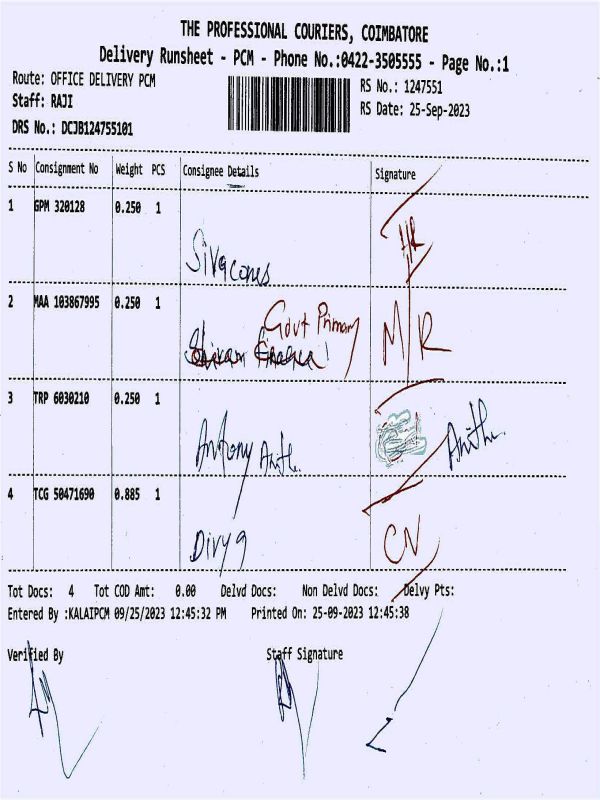 THE PROFESSIONAL COURIERS, COIMBATORE
Delivery Runsheet - PCM - Phone No.:0422-3505555 - Page No.:1
Route: OFFICE DELIVERY PCM
RS No.: 1247551
Staff: RAJI
RS Date: 25-Sep-2023
DRS No.: DCJB124755101
S No Consignment No Weight PCS Consignee Details Signature
1 GPM 320128 0.250 1
Sivacomes HR
2 MAA 103867995 0.250 1
Govt Primary M/R
3 TRP 6030210 0.250 1
Antony Anith. Anith.
4 TCG 50471690 0.885 1
Divya CN
Tot Docs: 4 Tot COD Amt: 0.00 Delvd Docs: Non Delvd Docs: Delvy Pts:
Entered By :KALAIPCM 09/25/2023 12:45:32 PM Printed On: 25-09-2023 12:45:38
Verified By Staff Signature